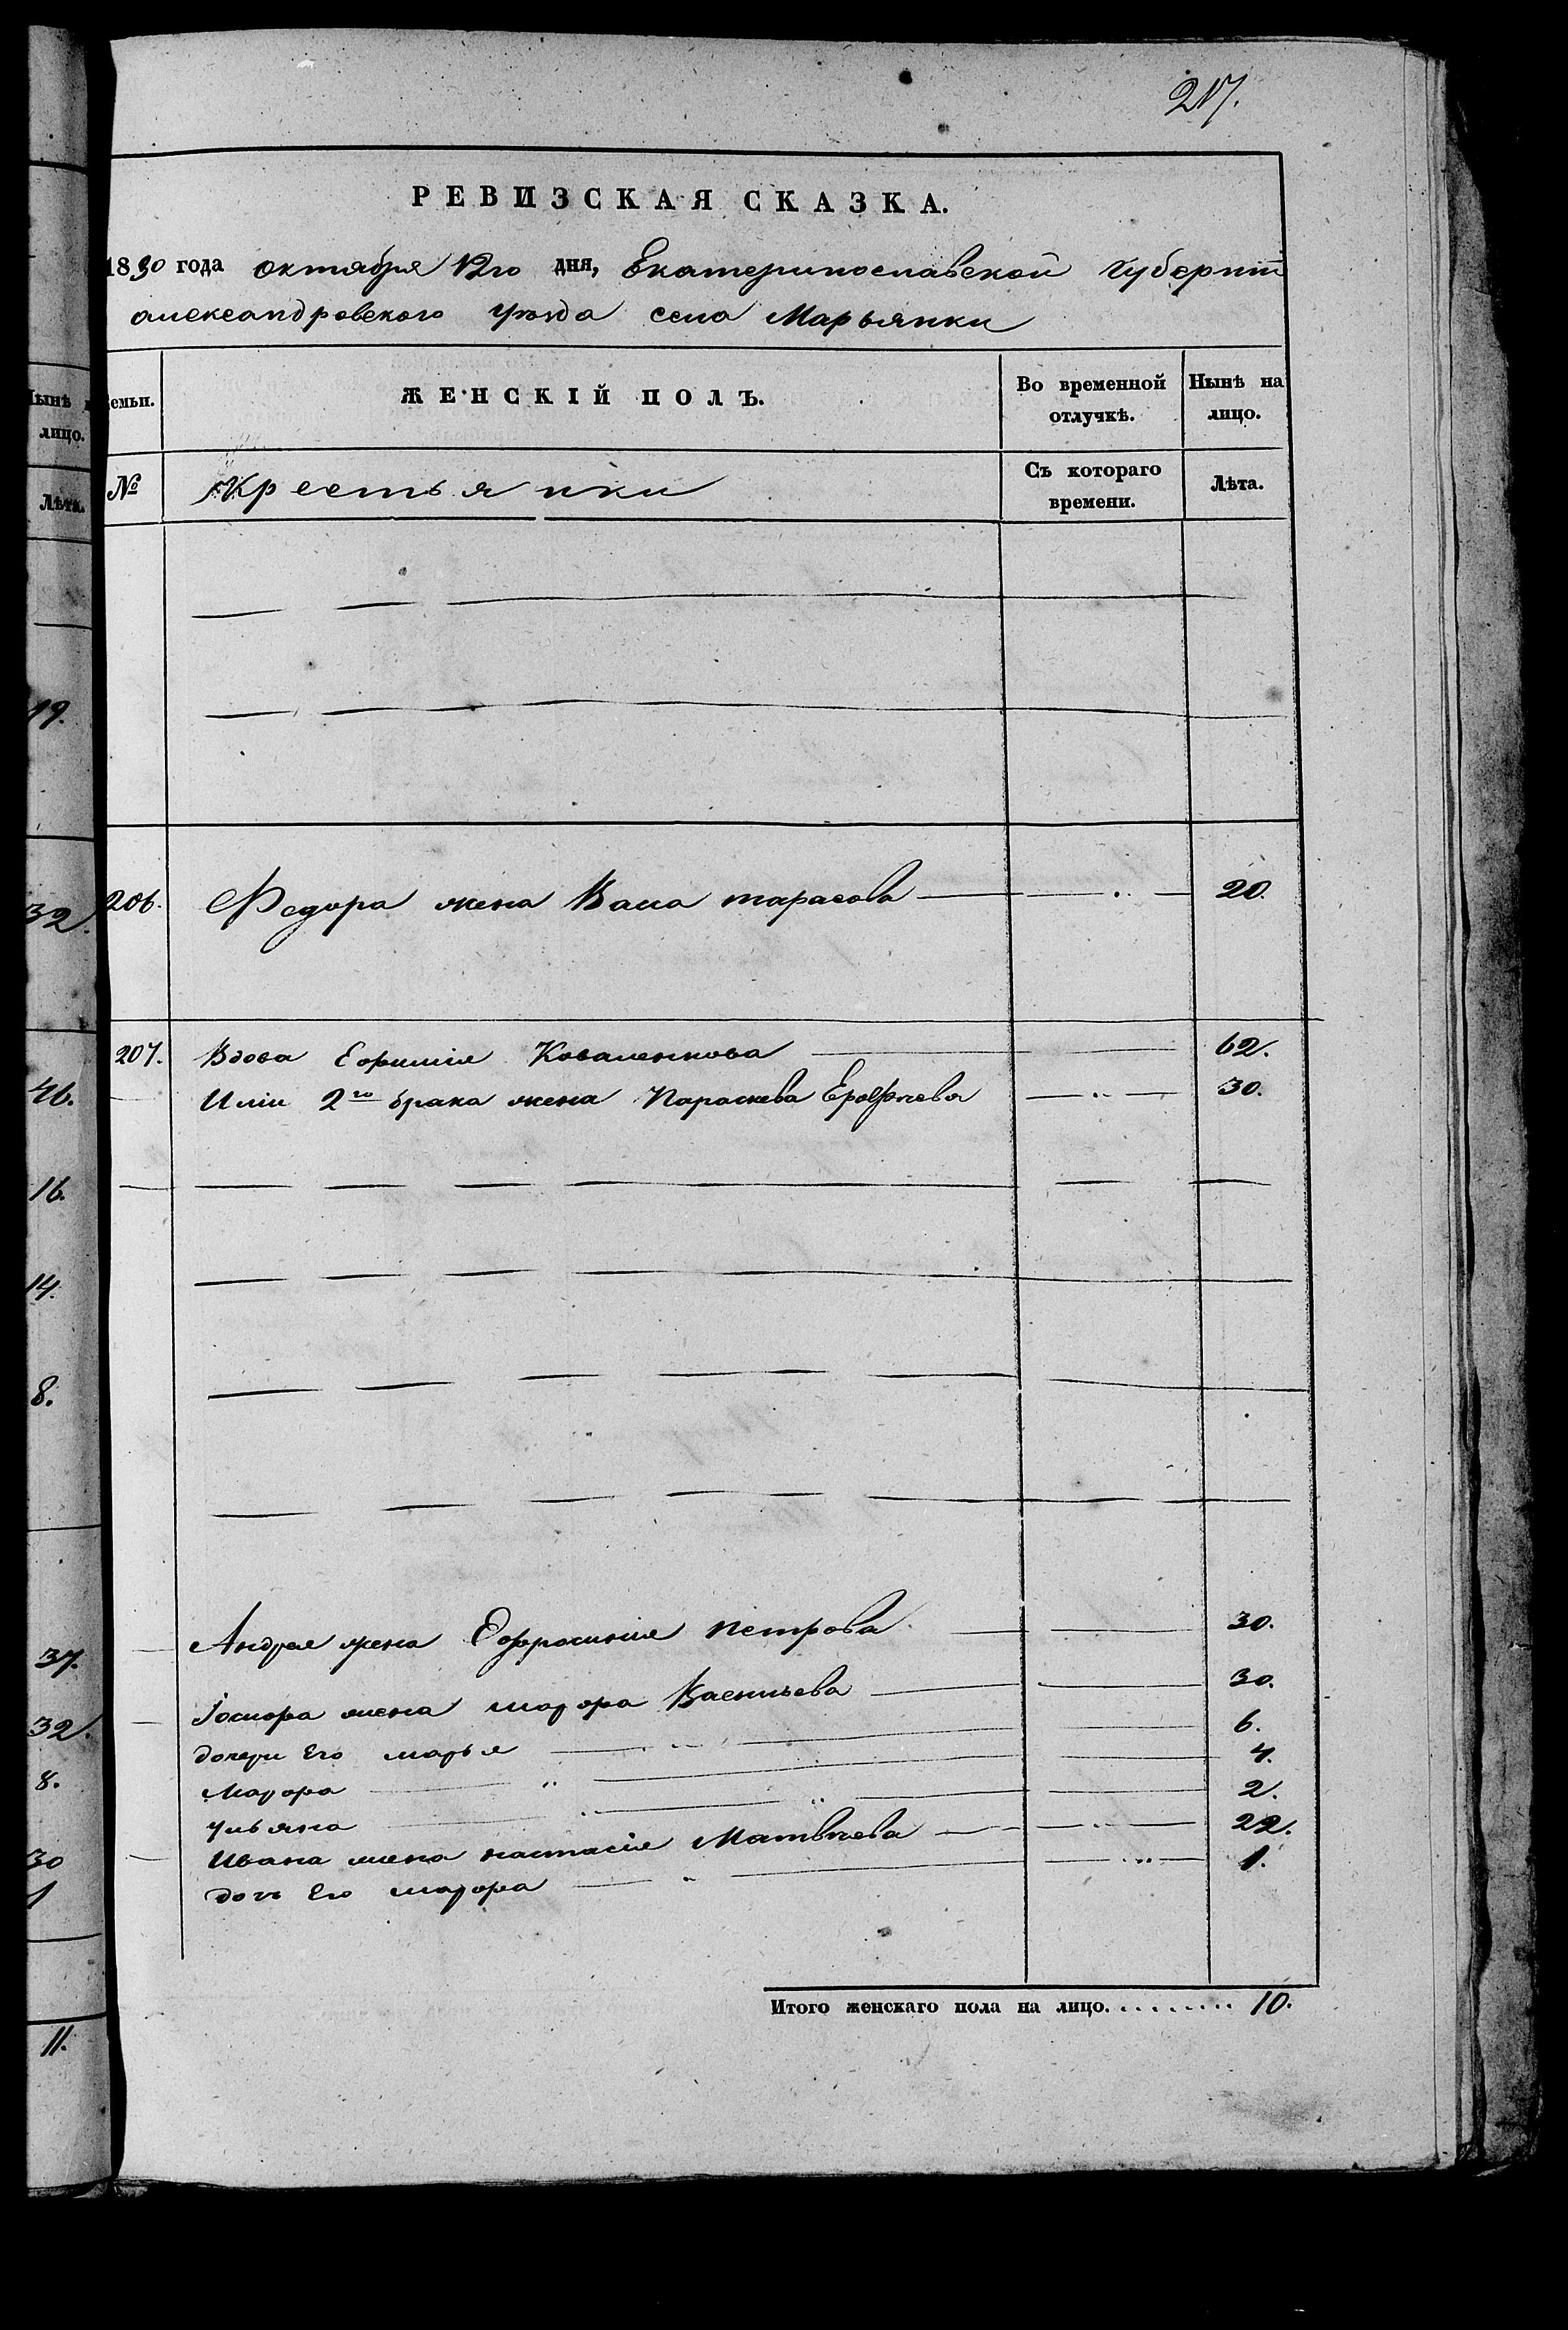 217.
РЕВИЗСКАЯ СКАЗКА.
1850 года октября 12го дня, Екатеринославской губерніи
александровского уѣзда села Марьянки
Нынѣ
лицо.
Лѣта.
Семьи.
ЖЕНСКІЙ ПОЛЪ.
Во временной отлучкѣ.
Нынѣ на лицо.
№
Крестьянки
Съ котораго времени.
Лѣта.
19.
32.
206. Федора жена Васса тарасова 20.
207. Вдова Ефимія Коваленкова 62.
46.
Иліи 2го брака жена Параскева Ерофѣева 30.
16.
14.
8.
37.
Андрея жена Ефросинія петрова 30.
Іосифа жена Васильева 30.
32.
дочери Его марья 6.
8.
4.
ульяна 2.
Ивана жена настасія Матвѣева 22.
30
дочь Его 1.
1
Итого женскаго пола на лицо. 10.
11.